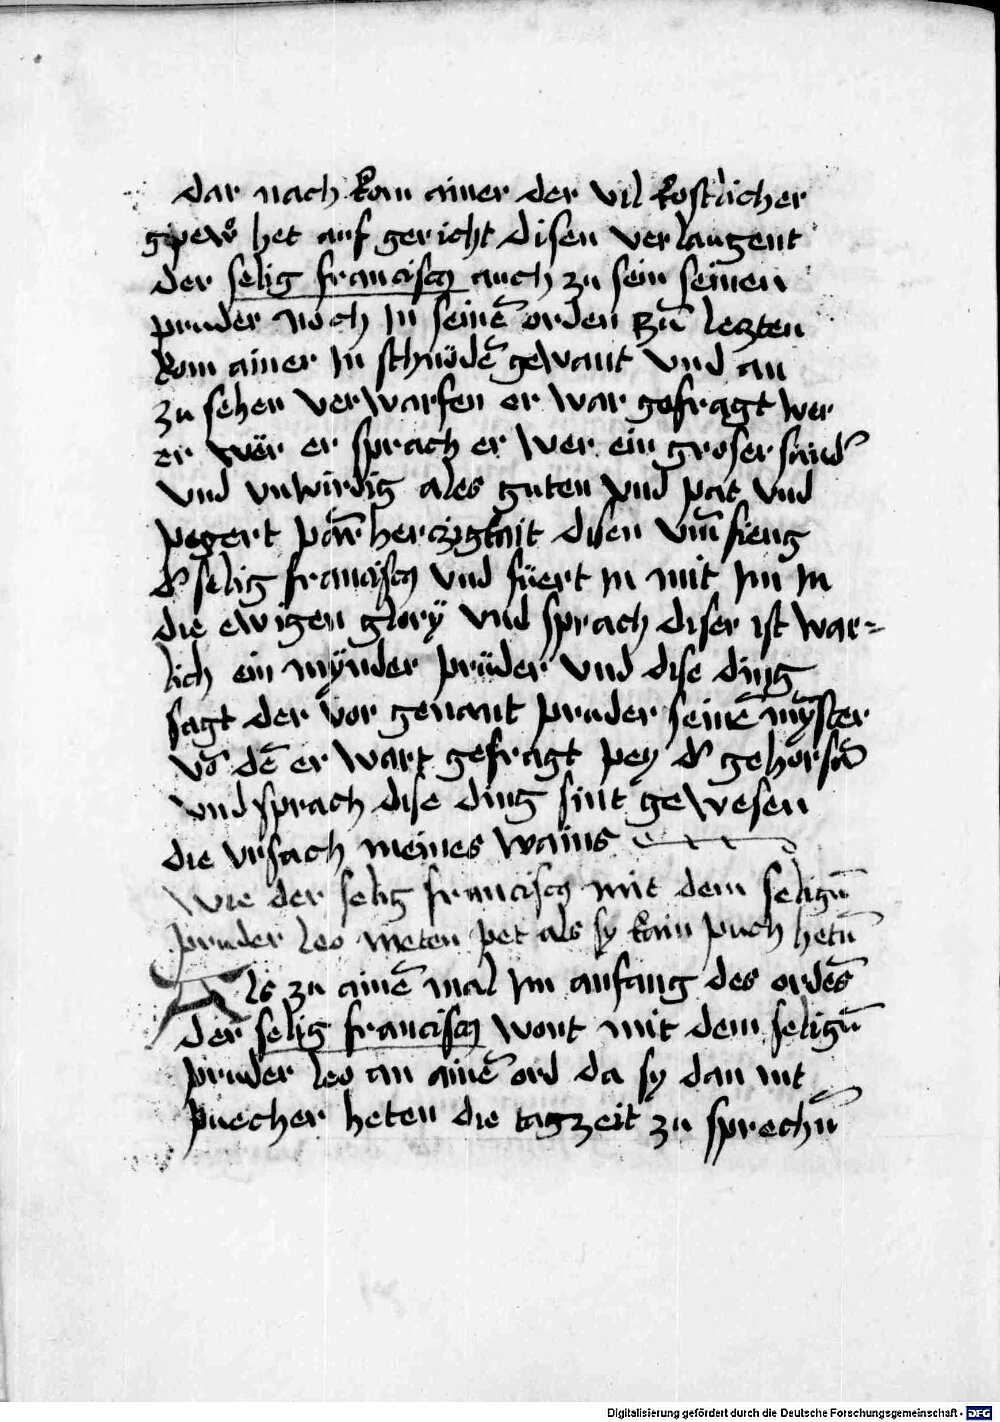 dar nach kom ainer der vil kostlicher
gepew het auf gericht disen verlaugent
der selig franciscꝰ auch zu sein seinen
pruder noch jn seinē orden zū leczten
kom ainer jn schnödē gewant vnd an
zu sehen verwarfen er war gefragt wer
er wër er sprach er wer ein groser sündˀ
vnd vnwirdig ales guten vnd pat vnd
pegert parm̄herczigkait disen vm̄ fieng
dˀ selig franciscꝰ vnd füert jn mit jm jn
die ewigen glorÿ vnd sprach diser ist war=
lich ein mÿnder prüder vnd dise ding
sagt der vor genant pruder seinē mÿster
võ dē er wart gefragt pey dˀ gehorsā
vnd sprach dise ding sint gewesen
die vrsach meines wains
Wie der selig franciscꝰ mit dem selign̄
pruder leo meten pet als sy kain puch hetn̄
Als zu ainē mal jm anfang des ordēs
der selig franciscꝰ wont mit dem selign̄
pruder leo an ainē ord da sy dan nit
puecher heten die tagzeit zu sprechn̄
Digitalisierung gefördert durch die Deutsche Forschungsgemeinschaft - DFG